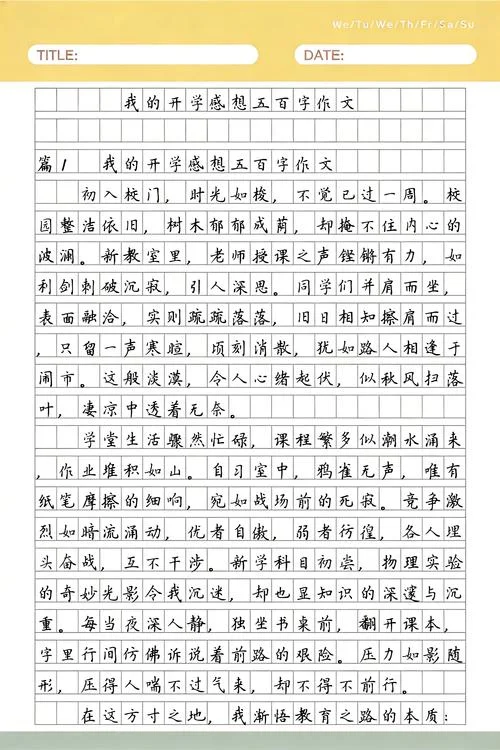 We/Tu/We/Th/Fr/Sa/Su
TITLE:
DATE:
我的开学感想五百字作文
篇1 我的开学感想五百字作文
初入校门，时光如梭，不觉已过一周。校
园整洁依旧，树木郁郁成荫，却掩不住内心的
波澜。新教室里，老师授课之声铿锵有力，如
利剑刺破沉寂，引人深思。同学们并肩而坐，
表面融洽，实则疏疏落落，旧日相知擦肩而过
，只留一声寒暄，顷刻消散，犹如路人相逢于
闹市。这般淡漠，令人心绪起伏，似秋风扫落
叶，凄凉中透着无奈。
学堂生活骤然忙碌，课程繁多似潮水涌来
，作业堆积如山。自习室中，鸦雀无声，唯有
纸笔摩擦的细响，宛如战场前的死寂。竞争激
烈如暗流涌动，优者自傲，弱者彷徨，各人埋
头奋战，互不干涉。新学科目初尝，物理实验
的奇妙光影令我沉迷，却也显知识的深邃与沉
重。每当夜深人静，独坐书桌前，翻开课本，
字里行间仿佛诉说着前路的艰险。压力如影随
形，压得人喘不过气来，却不得不前行。
在这方寸之地，我渐悟教育之路的本质：